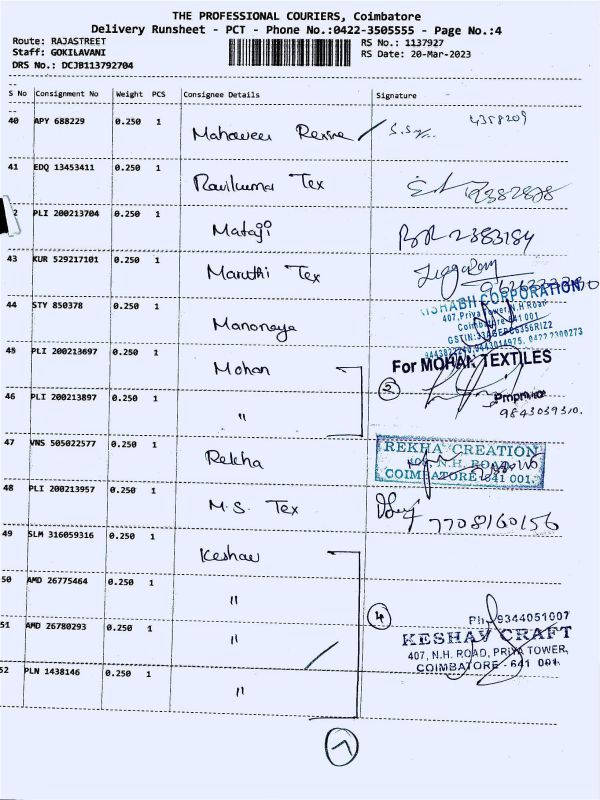 THE PROFESSIONAL COURIERS, Coimbatore
Delivery Runsheet - PCT - Phone No.:0422-3505555 - Page No.:4
Route: RAJASTREET RS No.: 1137927
Staff: GOKILAVANI RS Date: 20-Mar-2023
DRS No.: DCJB113792704
S No Consignment No Weight PCS Consignee Details Signature
40 APY 688229 0.250 1 Mahaveer
41 EDQ 13453411 0.250 1 Ravikumar Tex
2 PLI 200213704 0.250 1 Mataji 2383184
43 KUR 529217101 0.250 1 Maruthi Tex
44 STY 850378 0.250 1 Manonaya
CORPORATION
407, Priya Tower, N.H Road
Coimbatore 641 001
45 PLI 200213697 0.250 1 Mohan
For MOHAN TEXTILES
2
46 PLI 200213897 0.250 1 "
9843039310.
47 VNS 505022577 0.250 1 Rekha
REKHA CREATION
N.H. ROAD
COIMBATORE 641 001.
48 PLI 200213957 0.250 1 M.S. Tex 7708160156
49 SLM 316059316 0.250 1 Keshav
50 AMD 26775464 0.250 1 "
4
Ph: 9344051007
51 AMD 26780293 0.250 1 "
KESHAV CRAFT
407, N.H. ROAD, PRIYA TOWER,
COIMBATORE - 641 001.
52 PLN 1438146 0.250 1 "
7